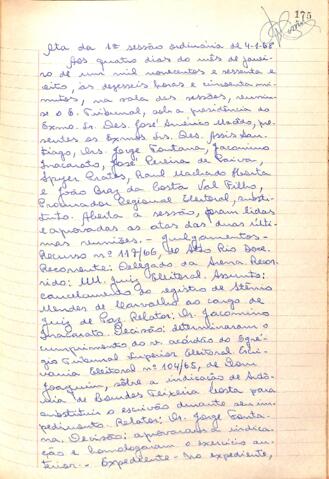 175
Ata da 1ª sessão ordinária de 4-1-68
Aos quatro dias do mês de janei-
ro de um mil novecentos e sessenta e
oito, às dezesseis horas e cinquenta mi-
nutos, na sala das sessões, reuniu-
se o E. Tribunal, sob a presidência do
Exmo. Sr. Des. José Américo Macêdo, pre-
sentes os Exmos. Srs. Des. Assis San-
tiago, Drs. Jorge Fontana, Jacomino
Inacarato, José Pereira de Paiva,
Prates, Raul Machado Horta
e João Braz da Costa Val Filho,
Procurador Regional Eleitoral, substi-
tuto. Aberta a sessão, foram lidas
e aprovadas as atas das duas últi-
mas reuniões. - Julgamentos -
Recurso nº 117/66, do Alto Rio Doce.
Recorrente: Delegado da Arena. Recor-
rido: MM. Juiz Eleitoral. Assunto:
cancelamento do registro de Stênio
Mendes de Carvalho ao cargo de
Juiz de Paz. Relator: Dr. Jacomino
Inacarato. Decisão: determinaram o
cumprimento do v. acórdão do Egré-
gio Tribunal Superior Eleitoral. Escri-
vania Eleitoral nº 104/65, de Dom
Joaquim, sôbre a indicação de
de Bourdes Teixeira Costa para
substituir o escrivão durante seu im-
pedimento. Relator: Dr. Jorge Fonta-
na. Decisão: aprovaram a indica-
ção e homologaram o exercício an-
terior. - Expediente - No expediente,